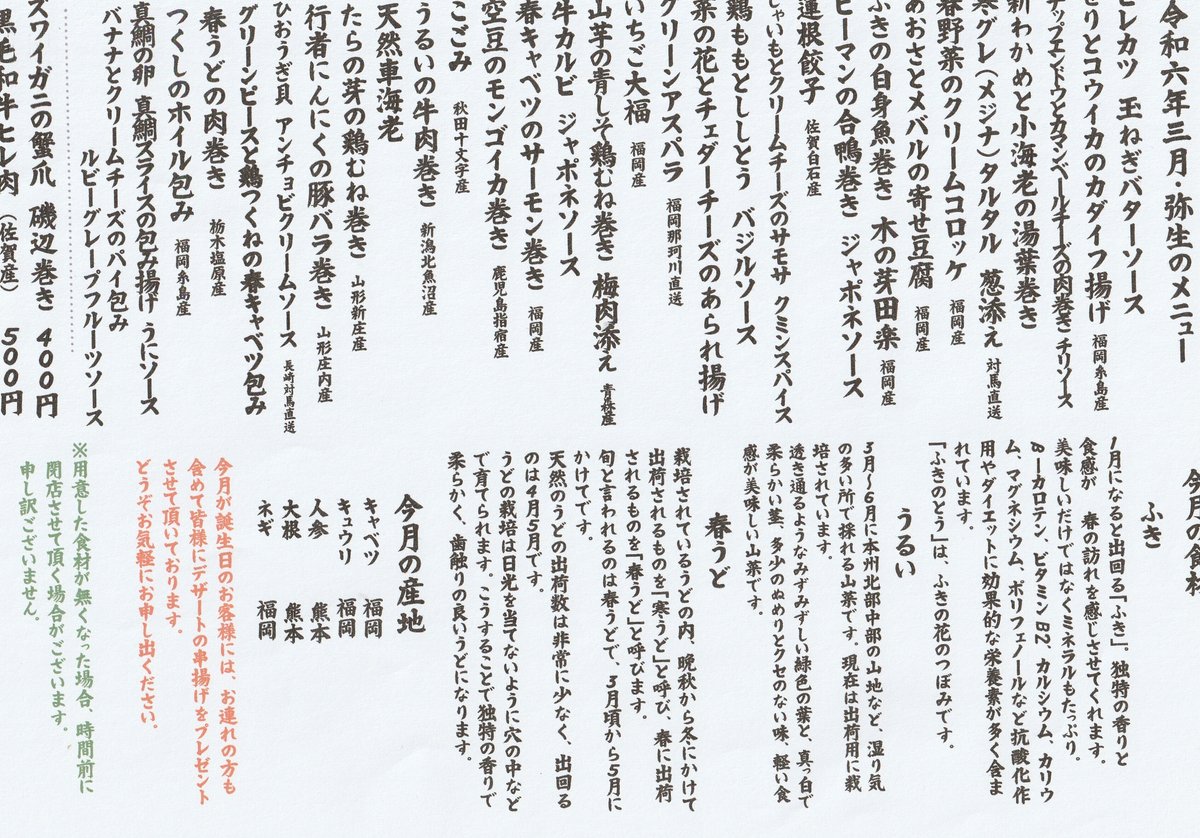 令和六年三月・弥生のメニュー
ヒレカツ 玉ねぎバターソース
せりとコウイカのカダイフ揚げ 福岡糸島産
ナップエンドウとカマンベールチーズの肉巻き チリソース
新わかめと小海老の湯葉巻き
寒グレ(メジナ)タルタル 葱添え 対馬直送
春野菜のクリームコロッケ 福岡産
あおさとメバルの寄せ豆腐 福岡産
ふきの白身魚巻き 木の芽田楽 福岡産
ピーマンの合鴨巻き ジャポネソース
蓮根餃子 佐賀白石産
じゃいもとクリームチーズのサモサ クミンスパイス
鶏ももとししとう バジルソース
菜の花とチェダーチーズのあられ揚げ
グリーンアスパラ 福岡那珂川直送
いちご大福 福岡産
山芋の青しそ鶏むね巻き 梅肉添え 青森産
牛カルビ ジャポネソース
春キャベツのサーモン巻き 福岡産
空豆のモンゴイカ巻き 鹿児島指宿産
こごみ 秋田十文字産
うるいの牛肉巻き 新潟北魚沼産
天然車海老
たらの芽の鶏むね巻き 山形新庄産
行者にんにくの豚バラ巻き 山形庄内産
ひおうぎ貝 アンチョビクリームソース 長崎対馬直送
グリーンピースと鶏つくねの春キャベツ包み
春うどの肉巻き 栃木塩原産
つくしのホイル包み 福岡糸島産
真鯛の卵 真鯛スライスの包み揚げ うにソース
バナナとクリームチーズのパイ包み
ルビーグレープフルーツソース
ズワイガニの蟹爪 磯辺巻き 400円
黒毛和牛ヒレ肉 (佐賀産) 500円
今月の食材
ふき
1月になると出回る「ふき」。独特の香りと
食感が 春の訪れを感じさせてくれます。
美味しいだけではなくミネラルもたっぷり。
β-カロテン、ビタミンB2、カルシウム、カリウ
ム、マグネシウム、ポリフェノールなど抗酸化作
用やダイエットに効果的な栄養素が多く含ま
れています。
「ふきのとう」は、ふきの花のつぼみです。
うるい
3月~6月に本州北部中部の山地など、湿り気
の多い所で採れる山菜です。現在は出荷用に栽
培されています。
透き通るようなみずみずしい緑色の葉と、真っ白で
柔らかい茎、多少のぬめりとクセのない味、軽い食
感が美味しい山菜です。
春うど
栽培されているうどの内、晩秋から冬にかけて
出荷されるものを「寒うど」と呼び、春に出荷
されるものを「春うど」と呼びます。
旬と言われるのは春うどで、3月頃から5月に
かけてです。
天然のうどの出荷数は非常に少なく、出回る
のは4月5月です。
うどの栽培は日光を当てないように穴の中など
で育てられます。こうすることで独特の香りで
柔らかく、歯触りの良いうどになります。
今月の産地
キャベツ 福岡
キュウリ 福岡
人参 熊本
大根 熊本
ネギ 福岡
今月が誕生日のお客様には、お連れの方も
含めて皆様にデザートの串揚げをプレゼント
させて頂いております。
どうぞお気軽にお申し出ください。
※用意した食材が無くなった場合、時間前に
閉店させて頂く場合がございます。
申し訳ございません。